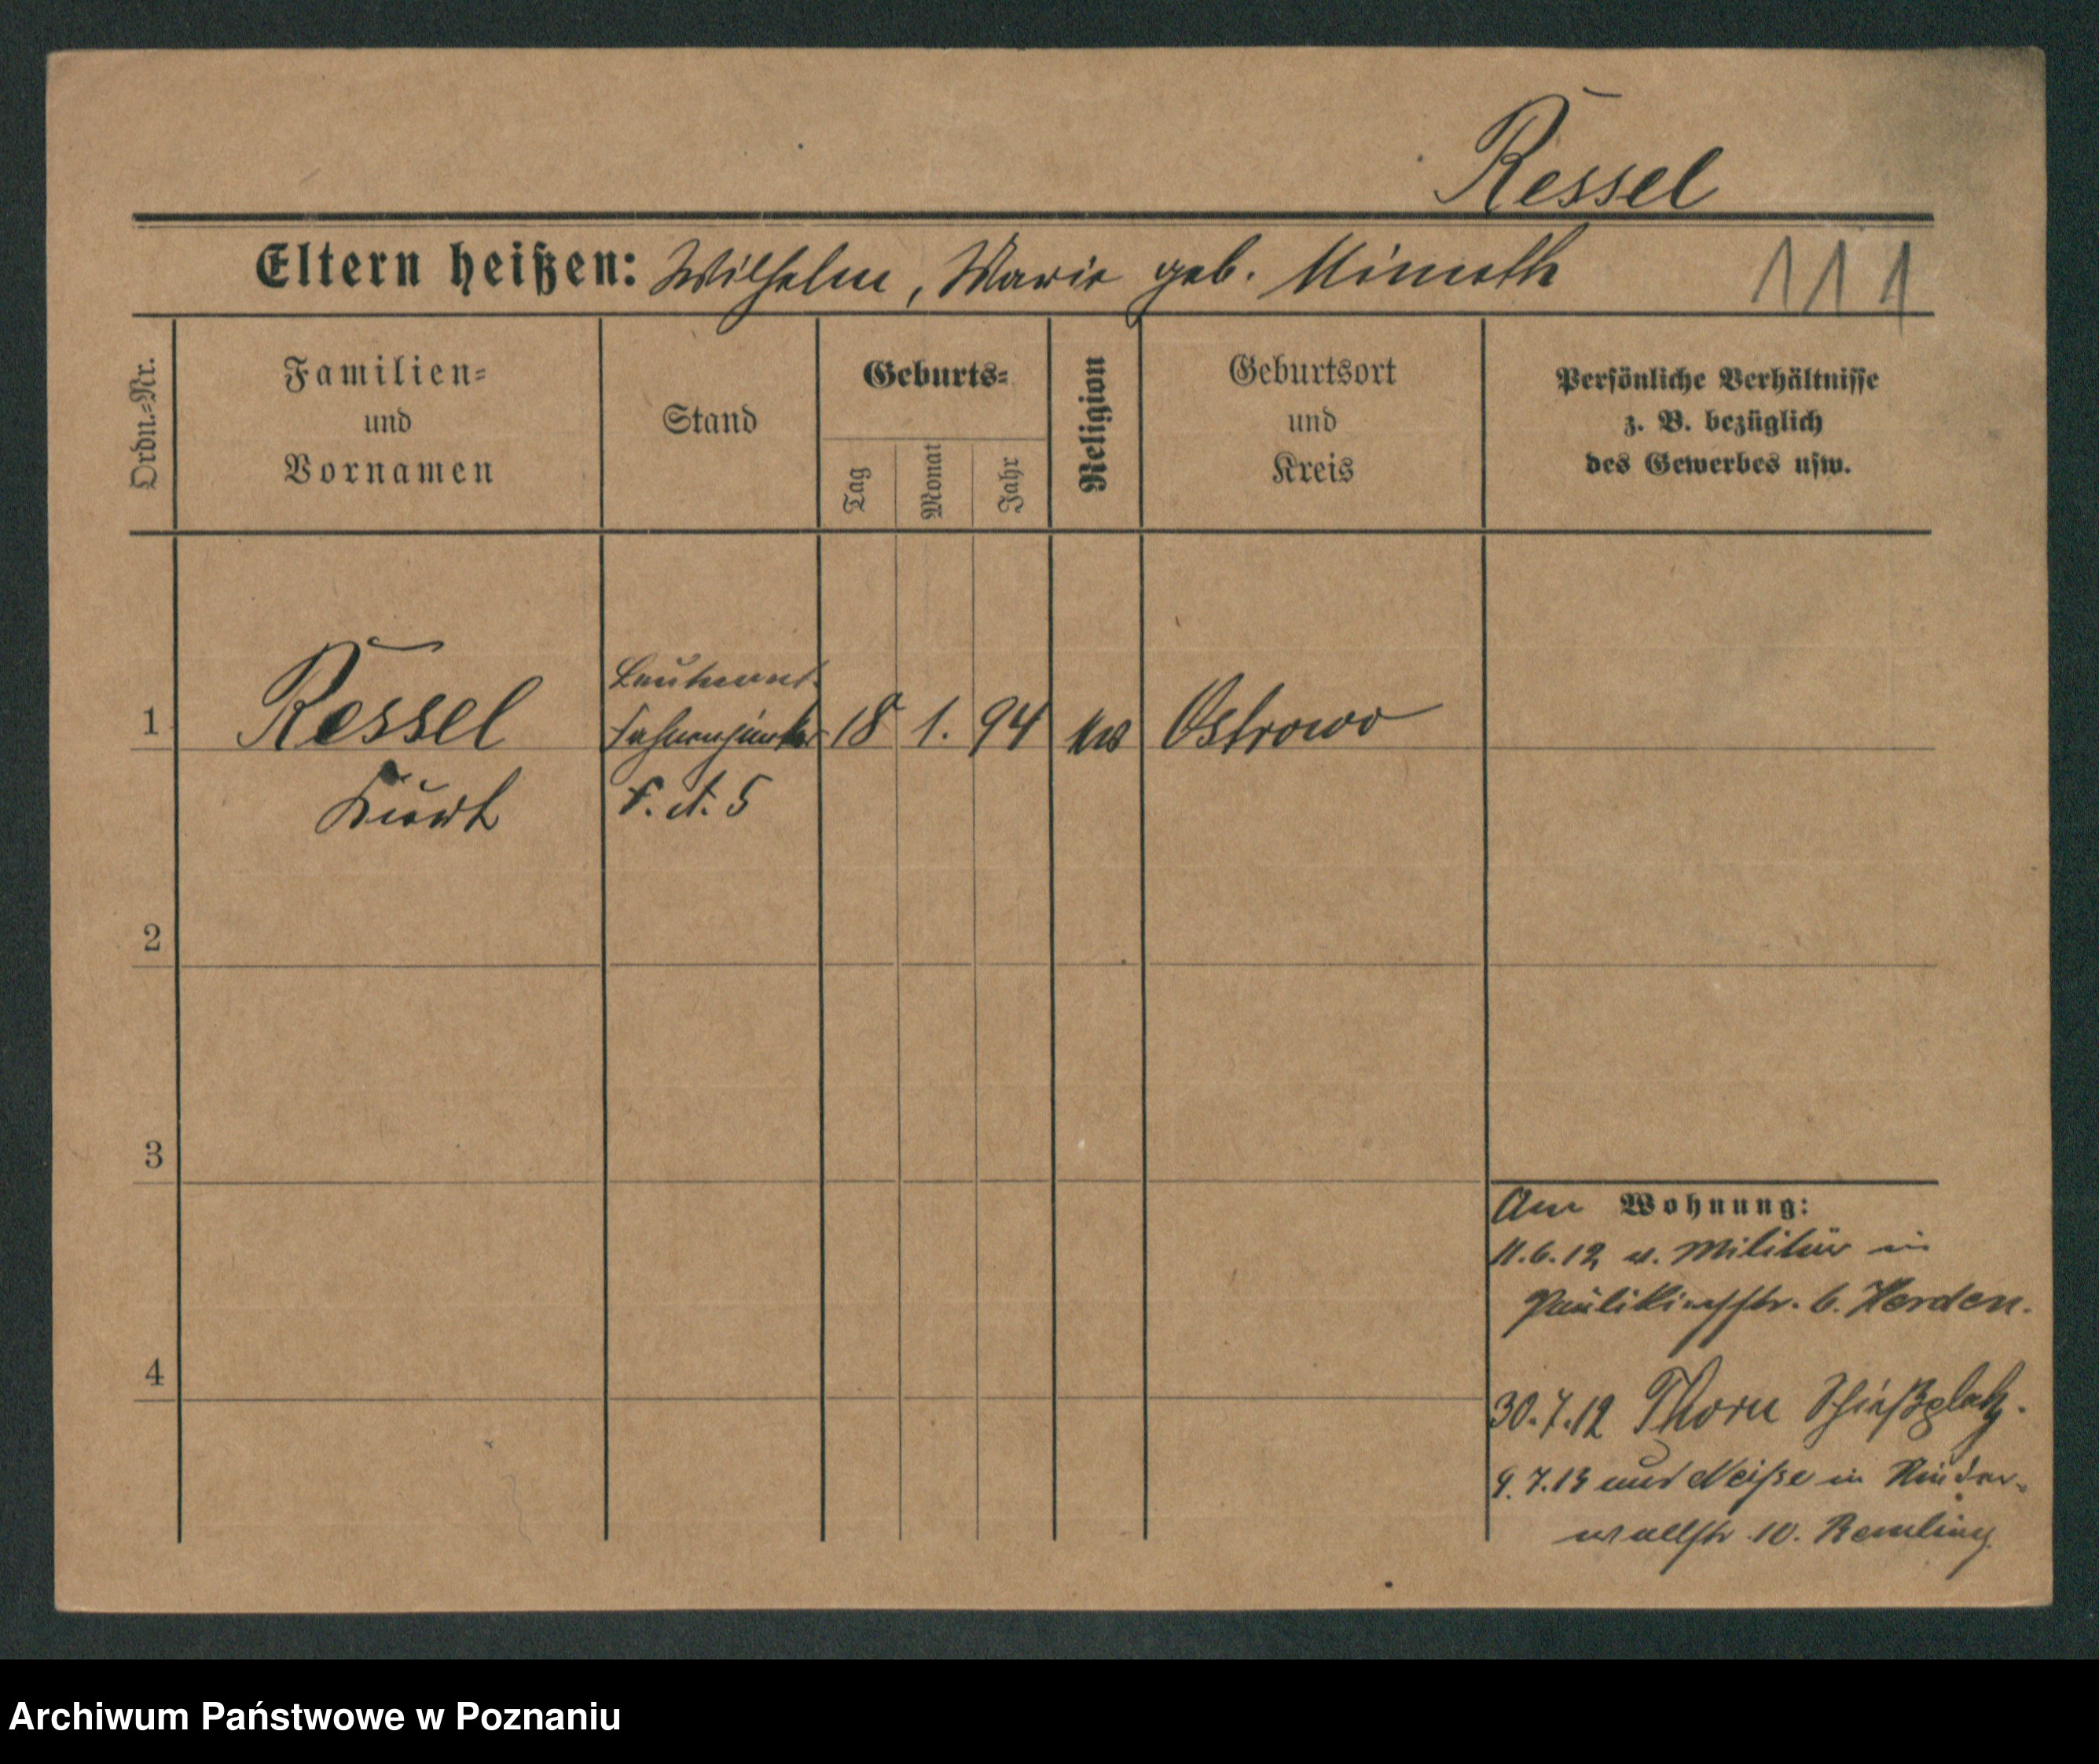 Ressel
Eltern heißen: Wilhelm, Marie geb. 111
Ordn.=Nr.
Familien=
und
Vornamen
Stand
Geburts=
Tag
Monat
Jahr
Religion
Geburtsort
und
Kreis
Persönliche Verhältnisse
z. B. bezüglich
des Gewerbes usw.
Leutnant
1 Ressel Fahnenjunker 18 1. 94 Ostrowo
Kurt F. A. 5
2
3
4
Am Wohnung:
11.6.12 v. Militär in
Paulikirchstr. 6. Herden.
30.7.12 Thorn Schießplatz.
9.7.13 nach Neiße in
wallstr. 10.
Archiwum Państwowe w Poznaniu